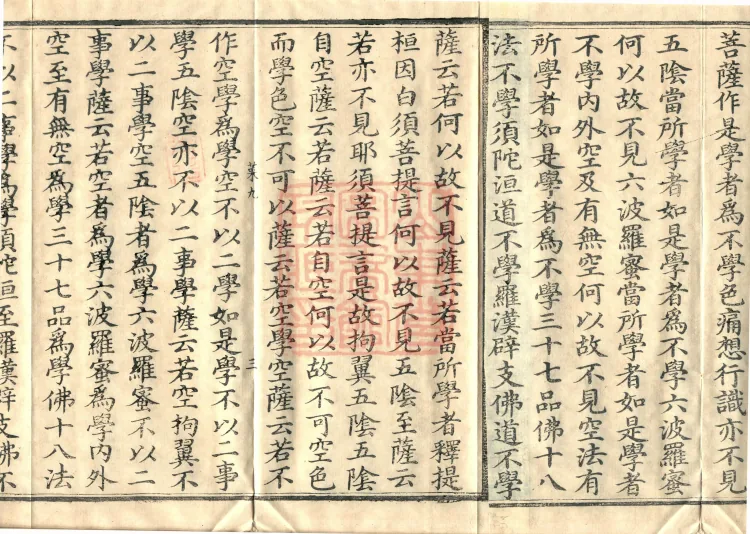 菩薩作是學者為不學色痛想行識亦不見
五陰當所學者如是學者為不學六波羅蜜
何以故不見六波羅蜜當所學者如是學者
不學內外空及有無空何以故不見空法有
所學者如是學者為不學三十七品佛十八
法不學須陀洹道不學羅漢辟支佛道不學
薩云若何以故不見薩云若當所學者釋提
桓因白須菩提言何以故不見五陰至薩云
若亦不見耶須菩提言是故拘翼五陰五陰
自空薩云若薩云若自空何以故不可空色
而學色空不可以薩云若空學空薩云若不
菜九
三
作空學為學空不以二學如是學不以二事
學五陰空亦不以二事學薩云若空拘翼不
以二事學空五陰者為學六波羅蜜不以二
事學薩云若空者為學六波羅蜜為學內外
空至有無空為學三十七品為學佛十八法
不以二事學為學須陀洹至羅漢辟支佛不